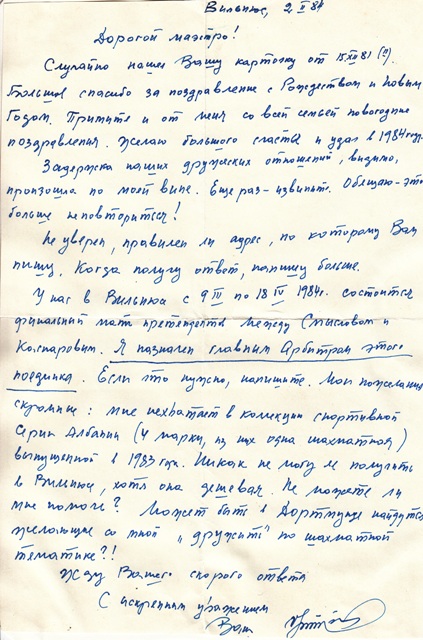 Вильнюс, 2 II 84
Дорогой маэстро!
Случайно нашел Вашу карточку от 15 XII 81 (!).
Большое спасибо за поздравление с Рождеством и Новым
Годом. Примите и от меня со всей семьей новогодние
поздравления. Желаю большого счастья и удач в 1984 году.
Задержка наших дружеских отношений, видимо,
произошла по моей вине. Еще раз - извините. Обещаю - это
больше не повторится!
Не уверен, правилен ли адрес, по которому Вам
пишу. Когда получу ответ, напишу больше.
У нас в Вильнюсе с 9 III по 18 IV 1984г. состоится
финальный матч претендентов между Смысловом и
Каспаровым. Я назначен главным Арбитром этого
поединка. Если что нужно, напишите. Мои пожелания
скромные: мне нехватает в колекции спортивной
серии Албании (4 марки, из них одна шахматная)
выпущенной в 1983 году. Никак не могу ее получить
в Вильнюсе, хотя она дешевая. Не можете ли
мне помочь? Может быть в Дортмунде найдутся
желающие со мной „дружить" по шахматной
тематике?!
Жду Вашего скорого ответа
С искренним уважением
Ваш